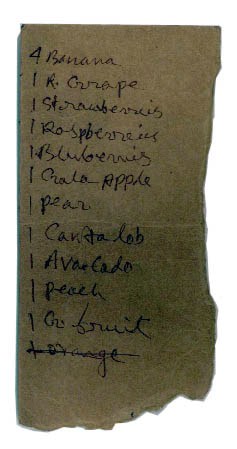 4 Banana
1 R. Grape
1 Strawberreis
1 Raspberreies
1 Bluberris
1 Gala Apple
1 pear
1 Cantalob
1 Avacado
1 peach
1 Gr. fruit
1 orange